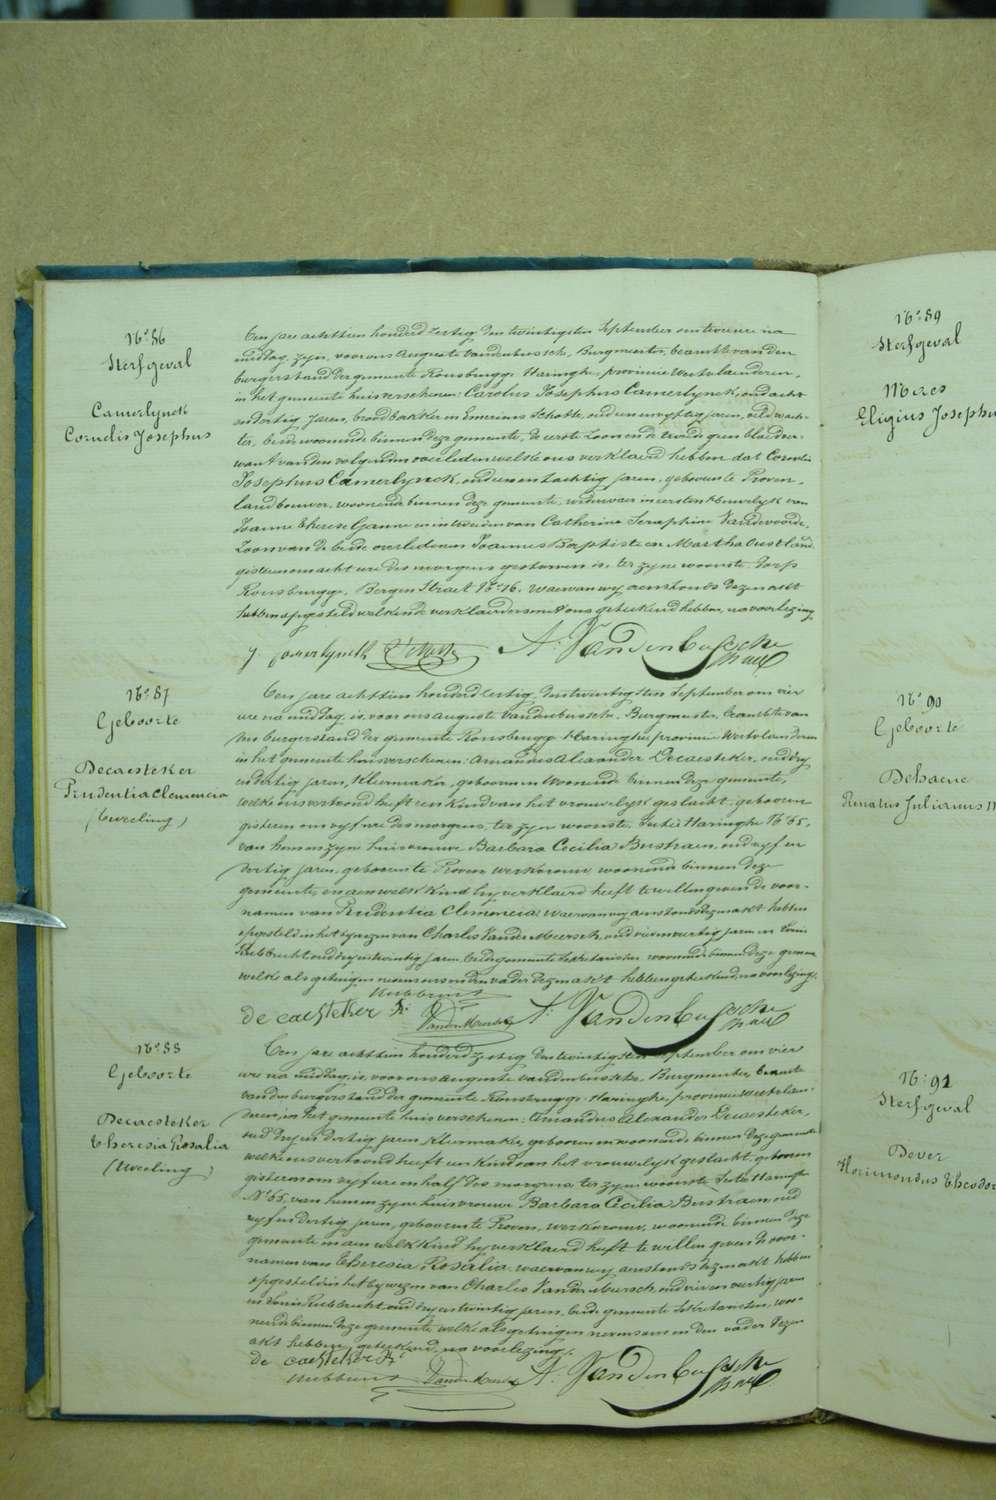 N.º 86
Sterfgeval
Camerlynck
Cornelis Josephus
Een jare achttien honderd zestig den twintigsten September om twee ure na
middag, zyn, voor ons Auguste Vandenbussche, Burgmeester, beambte van den
burgerstand der gemeente Rousbrugge-Haringhe, provincie Westvlaanderen,
in het gemeente huis verschenen: Carolus Josephus Camerlynck, oud acht
en dertig jaren, broodbakker en Emerinus Schotte, oud een en vyftig jaren, oud wach-
ter, beide woonende binnen deze gemeente, de eerste zoon en de tweede geen bloedver-
want van den volgenden overleden welke ons verklaerd hebben dat Cornelis
Josephus Camerlynck, oud een en tachtig jaren, geboren te Proven,
landbouwer, woonende binnen deze gemeente, weduwaer in eersten huwelyk van
Joanne Therese Ganne en in tweeden van Catherine Seraphine Vandevoorde,
zoon van de beide overledenen Joannes Baptiste en Martha Oustland
gisteren om acht ure des morgens gestorven is, ter zyne woonste, dorp
Rousbrugge, Bergen Straet N.º 16. Waervan wy aenstonds deze akt
hebben opgesteld welke de verklaerders met ons geteekend hebben, na voorlezing.
J. Camerlynck E. Schotte A. Vandenbussche
N.º 87
Geboorte
Decaesteker
Prudentia Clemencia
(tweeling)
Een jare achttien honderd zestig, den twintigsten September om vier
ure na middag, is, voor ons Auguste Vandenbussche, Burgmeester, beambte van
den burgerstand der gemeente Rousbrugge-Haringhe, provincie Westvlaanderen
in het gemeente huis verschenen: Amandus Alexander Decaesteker, oud dry
en dertig jaren, kleermaker, geboren en woonende binnen deze gemeente,
welke ons vertoond heeft een kind van het vrouwelyk geslacht, geboren
gisteren om vyf ure des morgens, ter zyne woonste, Sectie Haringhe N.º 65,
van hem en zyne huisvrouwe Barbara Cecilia Bustraen, oud vyf en
dertig jaren, geboren te Proven, werkvrouw, woonende binnen deze
gemeente, en aen welk kind hy verklaerd heeft te willen geven de voor-
namen van Prudentia Clemencia. Waervan wy aenstonds deze akt hebben
opgesteld in het bywezen van Charles Vandermeersch, oud vier en veertig jaren en Louis
Rubbrecht, oud dry en twintig jaren, beide gemeente Sekretarissen, woonende binnen deze gemeente
welke als getuigen nevens ons en den vader deze akt hebben geteekend, na voorlezing.
Rubbrecht
de caesteker A. Vandermeersch A. Vandenbussche
N.º 88
Geboorte
Decaesteker
Theresia Rosalia
(tweeling)
Een jare achttien honderd zestig den twintigsten September om vier
ure na middag, is, voor ons Auguste Vandenbussche, Burgmeester, beambte
van den burgerstand der gemeente Rousbrugge-Haringhe, provincie Westvlaen-
deren, in het gemeente huis verschenen: Amandus Alexander Decaesteker,
oud dry en dertig jaren, kleermaker, geboren en woonende binnen deze gemeente
welke ons vertoond heeft een kind van het vrouwelyk geslacht, geboren
gisteren om vyf ure en half des morgens ter zyne woonste Sectie Haringhe
N.º 65, van hem en zyne huisvrouwe Barbara Cecilia Bustraen, oud
vyf en dertig jaren, geboren te Proven, werkvrouw, woonende binnen deze
gemeente en aen welk kind hy verklaerd heeft te willen geven de voor-
namen van Theresia Rosalia. waervan wy aenstonds deze akt hebben
opgesteld in het bywezen van Charles Vandermeersch, oud vier en veertig jaren
en Louis Rubbrecht, oud dry en twintig jaren, beide gemeente Sekretarissen, woo-
nende binnen deze gemeente welke als getuigen nevens ons en den vader dezen
akt hebben geteekend, na voorlezing.
de caesteker A.
Rubbrecht Vandermeersch A. Vandenbussche
N.º 89
Sterfgeval
Eligius Josephus
N.º 90
Geboorte
Dehaene
Renatus Julianus
N.º 91
Sterfgeval
Dever
Florimondus Theodor